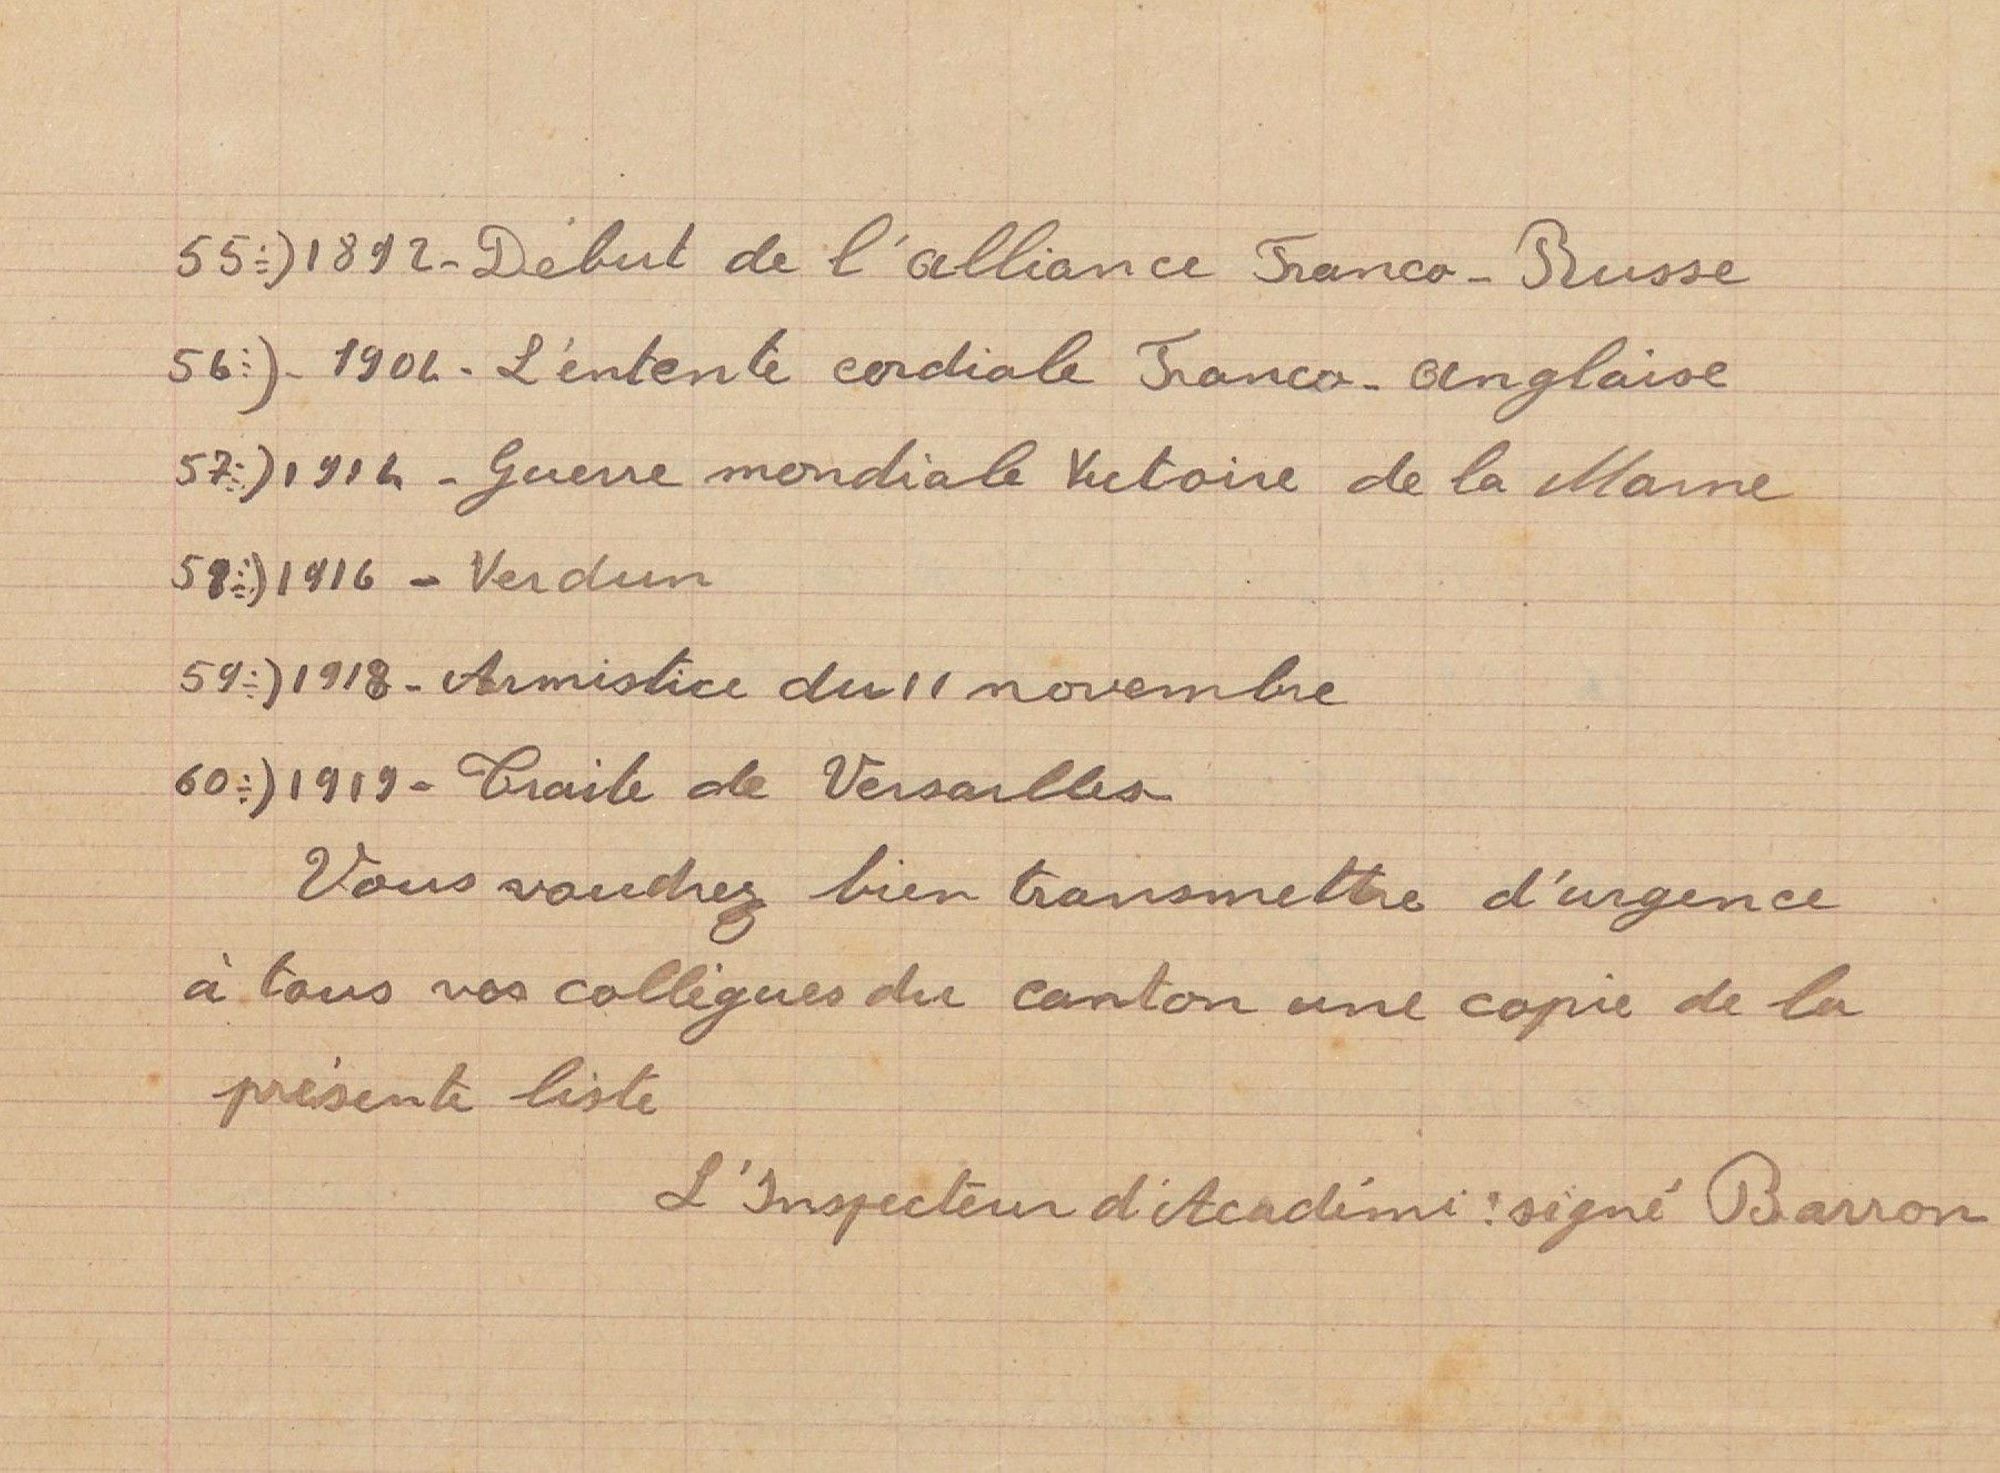 55:) 1892 - Début de l'alliance Franco-Russe
56:) - 1904 - L'entente cordiale Franco-anglaise
57:) 1914 - Guerre mondiale Victoire de la Marne
58:) 1916 - Verdun
59:) 1918 - Armistice du 11 novembre
60:) 1919 - Traite de Versailles
Vous voudrez bien transmettre d'urgence
à tous vos collègues du canton une copie de la
présente liste
L'Inspecteur d'Académi : signé Barron